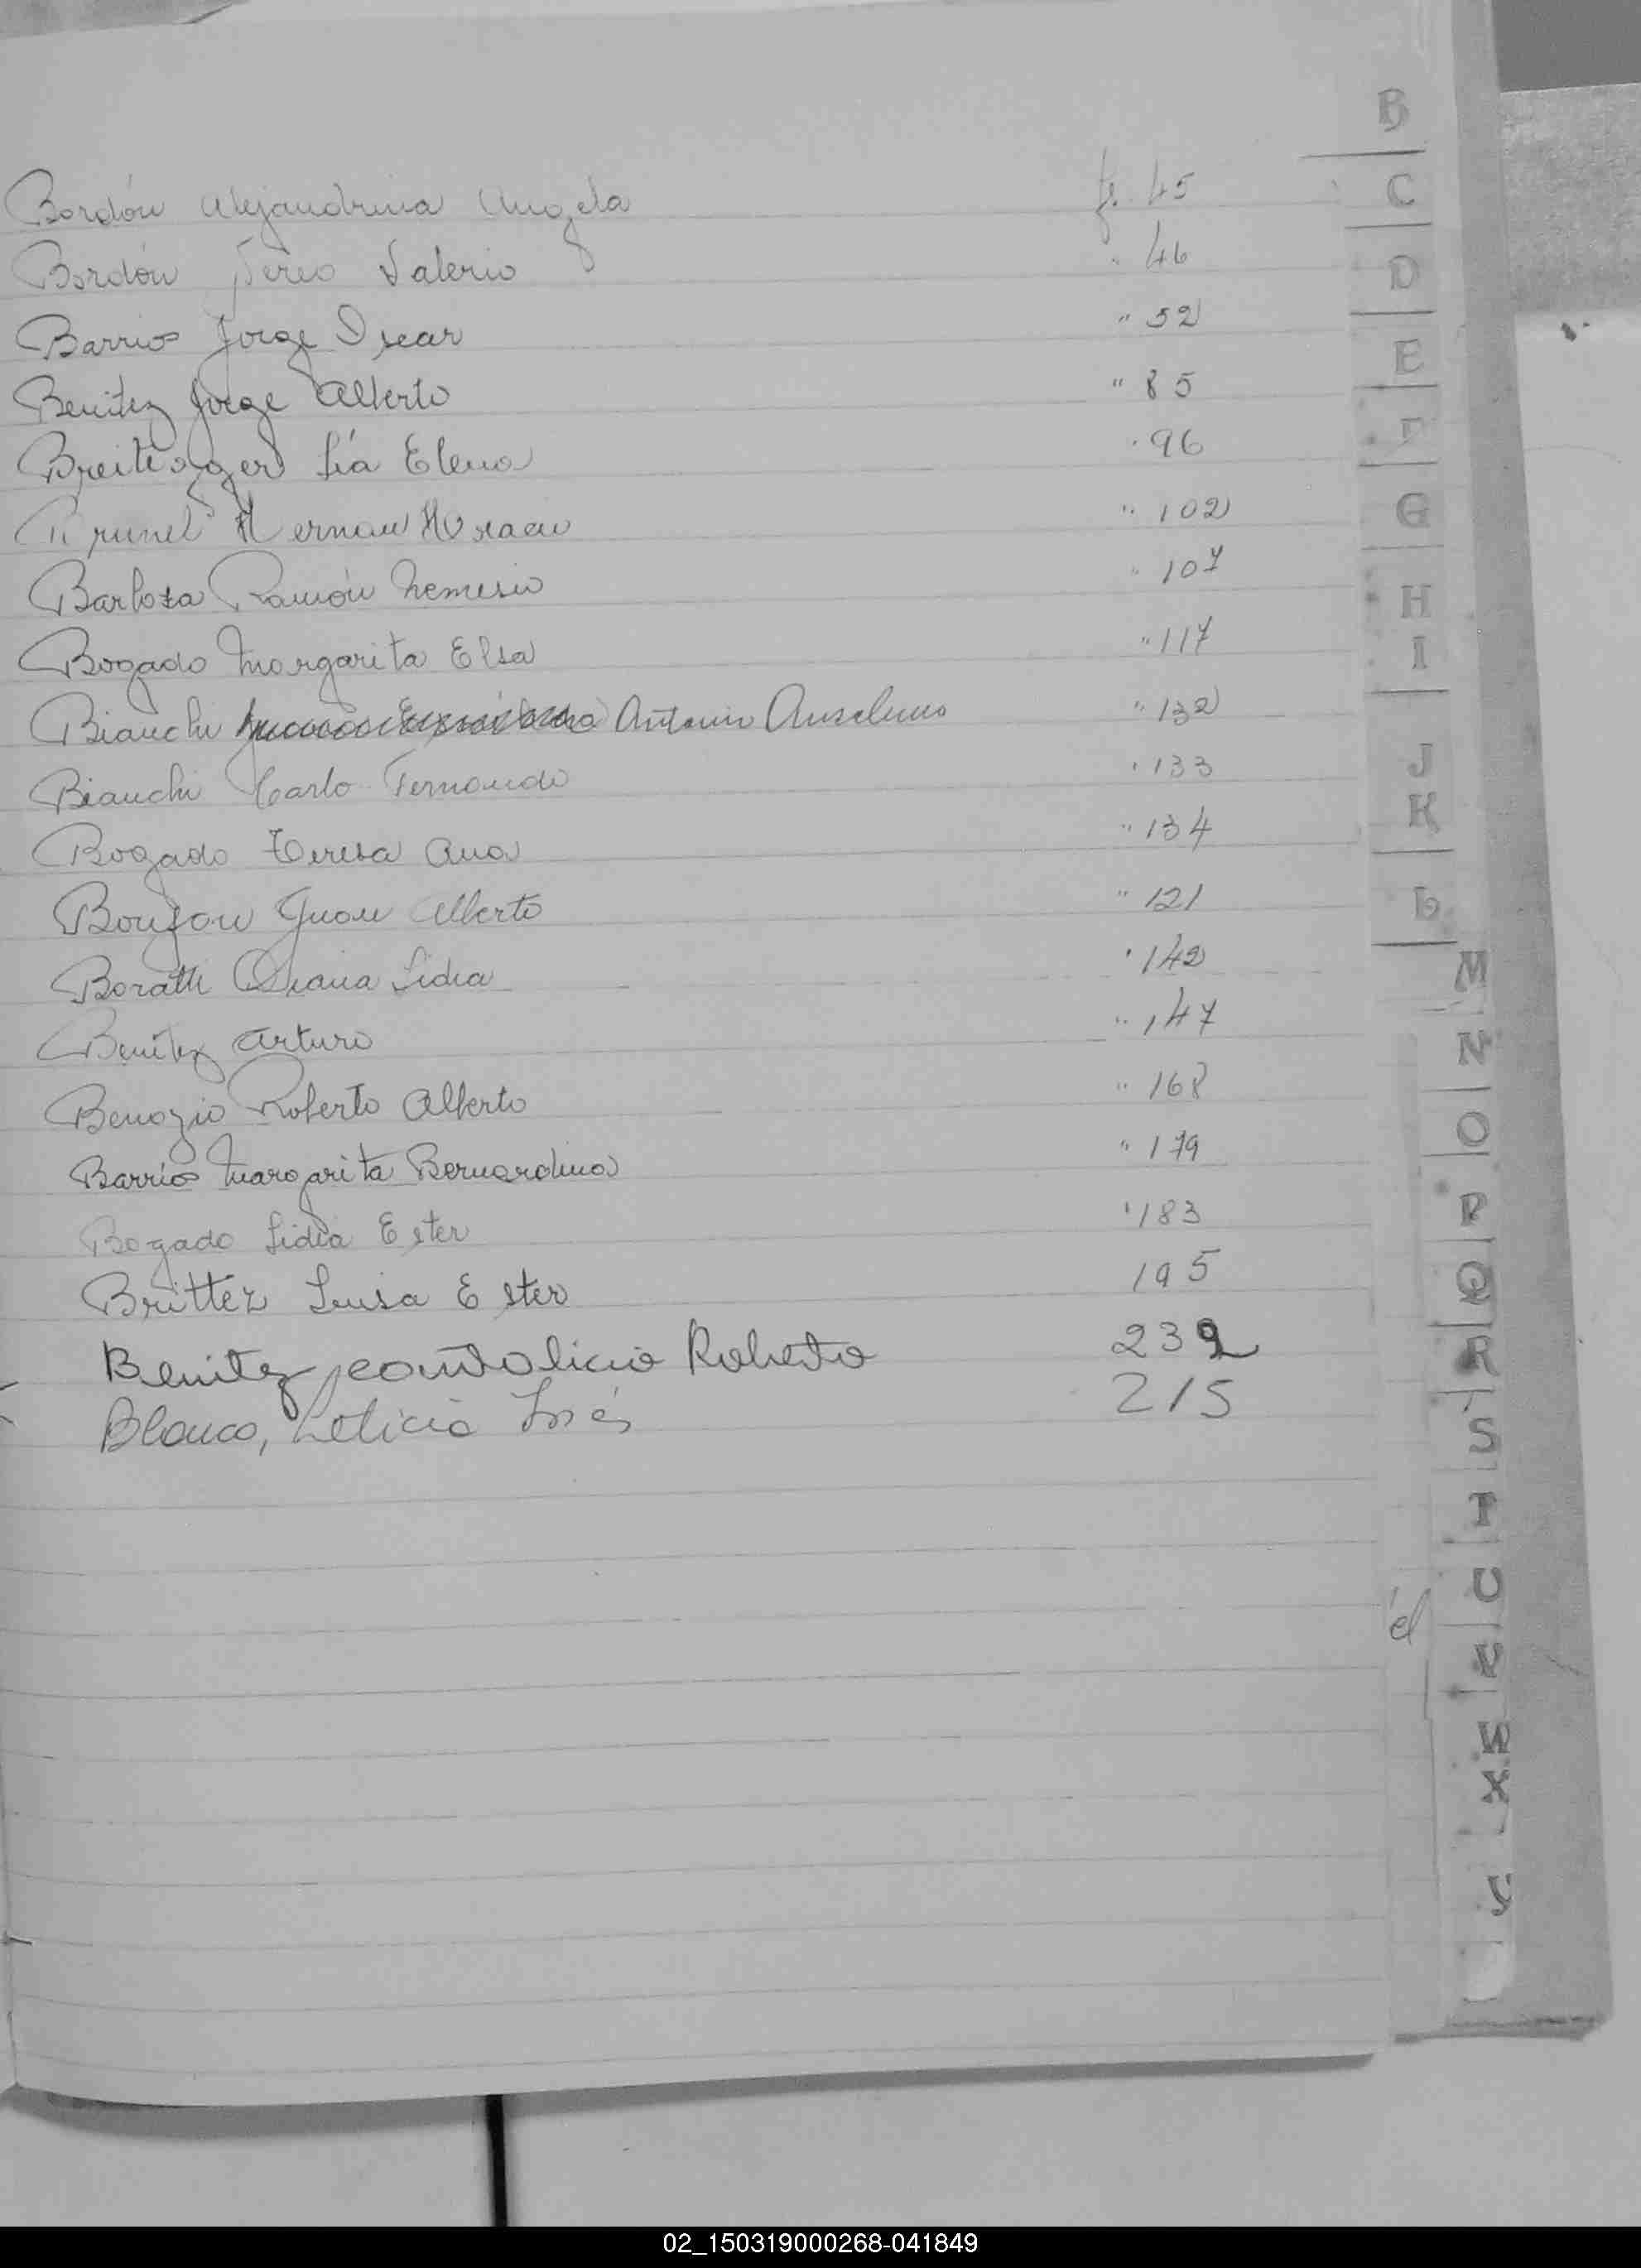 B
Bordón Alejandrina Angela fs. 45
Bordón Nereo Valerio " 46
Barrios Jorge Oscar " 52
Benitez Jorge Alberto " 85
Lía Elena " 96
Brunel Hernan Horacio " 102
Barboza Ramón Nemesio " 107
Bogado Margarita Elsa " 117
Bianchi Antonio Anselmo " 132
Bianchi Carlo Fernando " 133
Bogado Teresa Ana " 134
Juan Alberto " 121
Diana Lidia " 142
Benitez Arturo " 147
Benozio Roberto Alberto " 168
Barrios Margarita Bernardina " 179
Bogado Lidia Ester " 183
Brittez Luisa Ester 195
Benitez, Roberto 232
Blanco, Leticia Inés 215
C
D
E
F
G
H
I
J
K
L
M
N
O
P
Q
R
S
T
U
V
W
X
Y
él
02_150319000268-041849